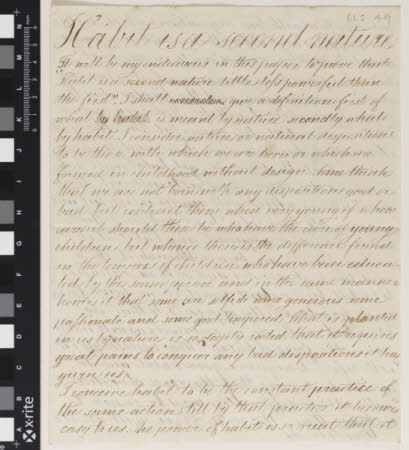 BLS 49
Habit is a second nature
It will be my endeavour in this paper to prove that
"Habit is a second nature little less powerful than
the first". I shall give a definition first of
what is meant by nature secondly what
by habit. I consider nature or natural dispositions
to be those with which we are born or which are
formed in childhood without design. Some think
that we are not born with any dispositions good or
bad but receive them when very young if where
careful should those be who have the care of young
children but whence then is the difference found
in the tempers of children who have been educa-
ted by the same person and in the same manner
how is it that some are selfish some generous some
passionate and some good tempered. What is planted
in us by nature is so deeply rooted that it requires
great pains to conquer any bad dispositions it has
given us.
I conceive habit to be the constant practice of
the same action till by that practice it becomes
easy to us. The power of habit is so great that it
x-rite